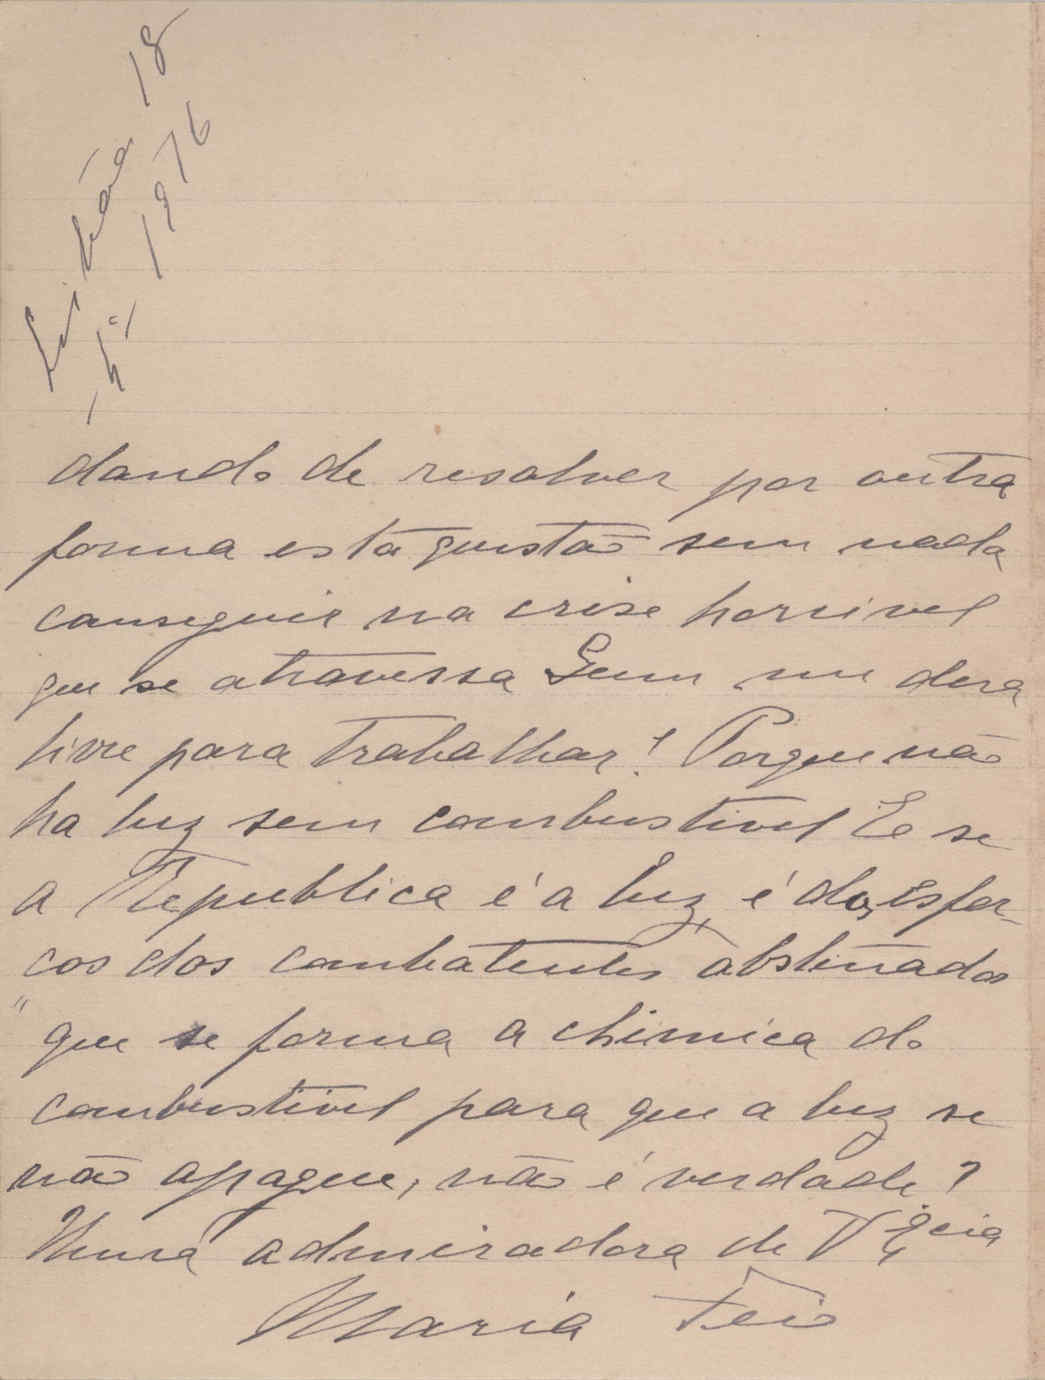 Lisbôa 18
-4º- 1916
dando de resolver por outra
forma esta questão sem nada
conseguir na crise horrivel
que se atravessa Quem me dera
livre para trabalhar! Porque não
ha luz sem combustivel E se
a Republica é a luz, é dos esfor-
cos dos combatentes obstinados
" que se forma a chimica do
combustivel para que a luz se
não apague, não é verdade?
Uma admiradora de V Ex.cia
Maria Feio